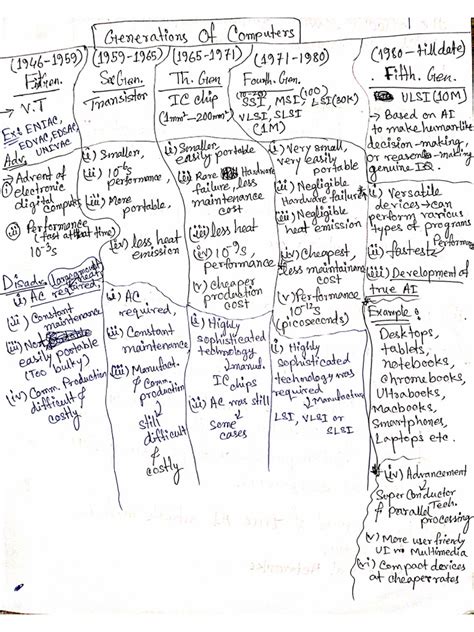 Generations Of Computers
(1946-1959)
First Gen.
→ V.T
Ex: ENIAC,
EDVAC, EDSAC,
UNIVAC
Adv.
→ Advent of
(i) electronic
digital computers
(ii) Performance
(fast at that time)
10⁻³s
Disadv.
(i) AC
required,
(ii) Constant
maintenance
(iii) Non
easily portable
(Too bulky)
(iv) Comm. Production
difficult &
costly
(1959-1965)
Sec Gen.
Transistor
(i) Smaller,
(ii) 10⁻⁶s
performance,
(iii) More
portable,
(iv) less heat
emission
(i) AC
required,
(ii) Constant
maintenance,
(iii) Manufact.
& Comm.
production
still
difficult
&
costly
(1965-1971)
Th. Gen
IC chip
(1mm²-200mm²)
(i) Smaller,
easily portable
(ii) Rare Hardware
failure, less
maintenance
cost
(iii) less heat
emission
(iv) 10⁻⁹s,
performance
(v) cheaper
production
cost
(i) Highly
sophisticated
technology
manuf.
IC chips
(ii) AC was still
some
cases
(1971-1980)
Fourth. Gen.
(10-20) (100)
SSI, MSI, LSI(30K)
VLSI, SLSI
(1M)
(i) Very small,
very easily
portable
(ii) Negligible
Hardware failure
(iii) Negligible
heat emission
(iv) Cheapest,
less maintenance
cost
(v) Performance
10⁻¹²s
(picoseconds)
(i) Highly
Sophisticated
technology was
required
Manufacturing
LSI, VLSI or
SLSI
(1980-till date)
Fifth. Gen.
ULSI (10M)
→ Based on AI
to make human like
decision-making,
or reasoning-making
genuine IQ.
(i) Versatile
devices → can
perform various
types of programs
(ii) fastest Performance
(iii) Development of
true AI
Example:
Desktops,
tablets,
notebooks,
chromebooks,
Ultrabooks,
Macbooks,
Smartphones,
Laptops etc.
(iv) Advancement
Super Conductor
& parallel Tech.
processing
(v) More user friendly
UI Multimedia
(vi) Compact devices
at cheaper rates